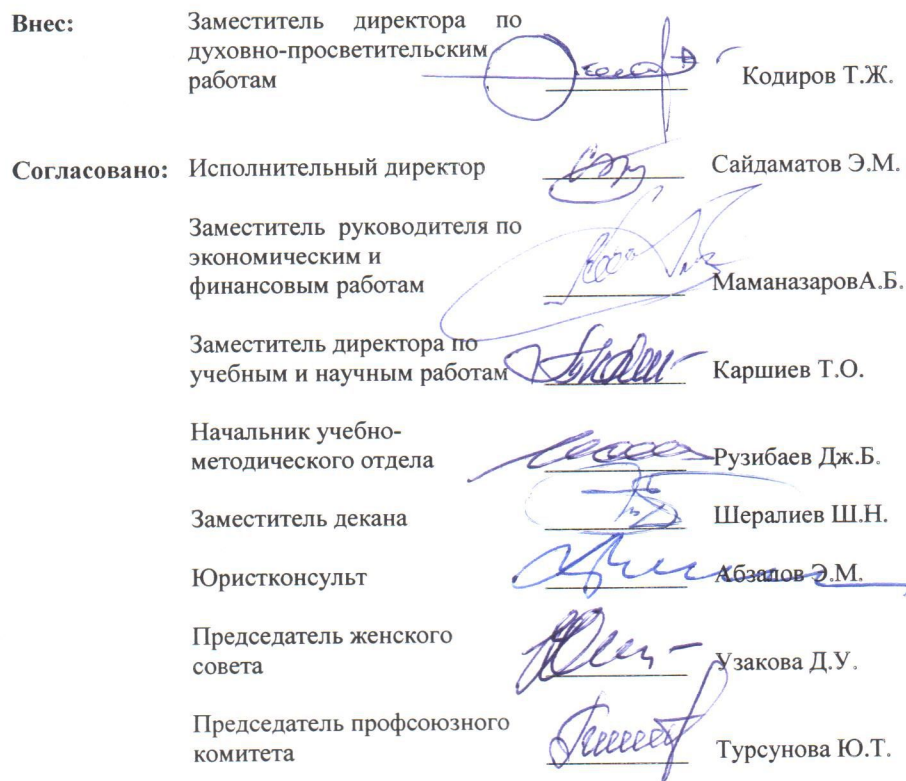 Внес: Заместитель директора по
духовно-просветительским
работам Кодиров Т.Ж.
Согласовано: Исполнительный директор Сайдаматов Э.М.
Заместитель руководителя по
экономическим и
финансовым работам МаманазаровА.Б.
Заместитель директора по
учебным и научным работам Каршиев Т.О.
Начальник учебно-
методического отдела Рузибаев Дж.Б.
Заместитель декана Шералиев Ш.Н.
Юристконсульт Абзалов Э.М.
Председатель женского
совета Узакова Д.У.
Председатель профсоюзного
комитета Турсунова Ю.Т.